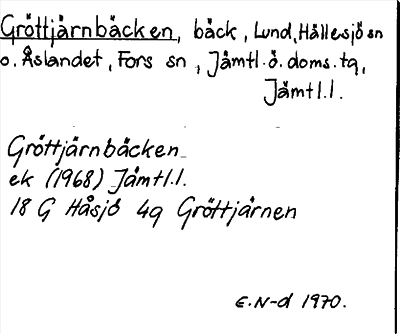 Gröttjärnbäcken, bäck, Lund, Hällesjö sn
o. Åslandet, Fors sn, Jämtl. ö. doms. tg,
Jämtl. l.
Gröttjärnbäcken
ek (1968) Jämtl. l.
18 G Håsjö 4g Gröttjärnen
E. N-d 1970.